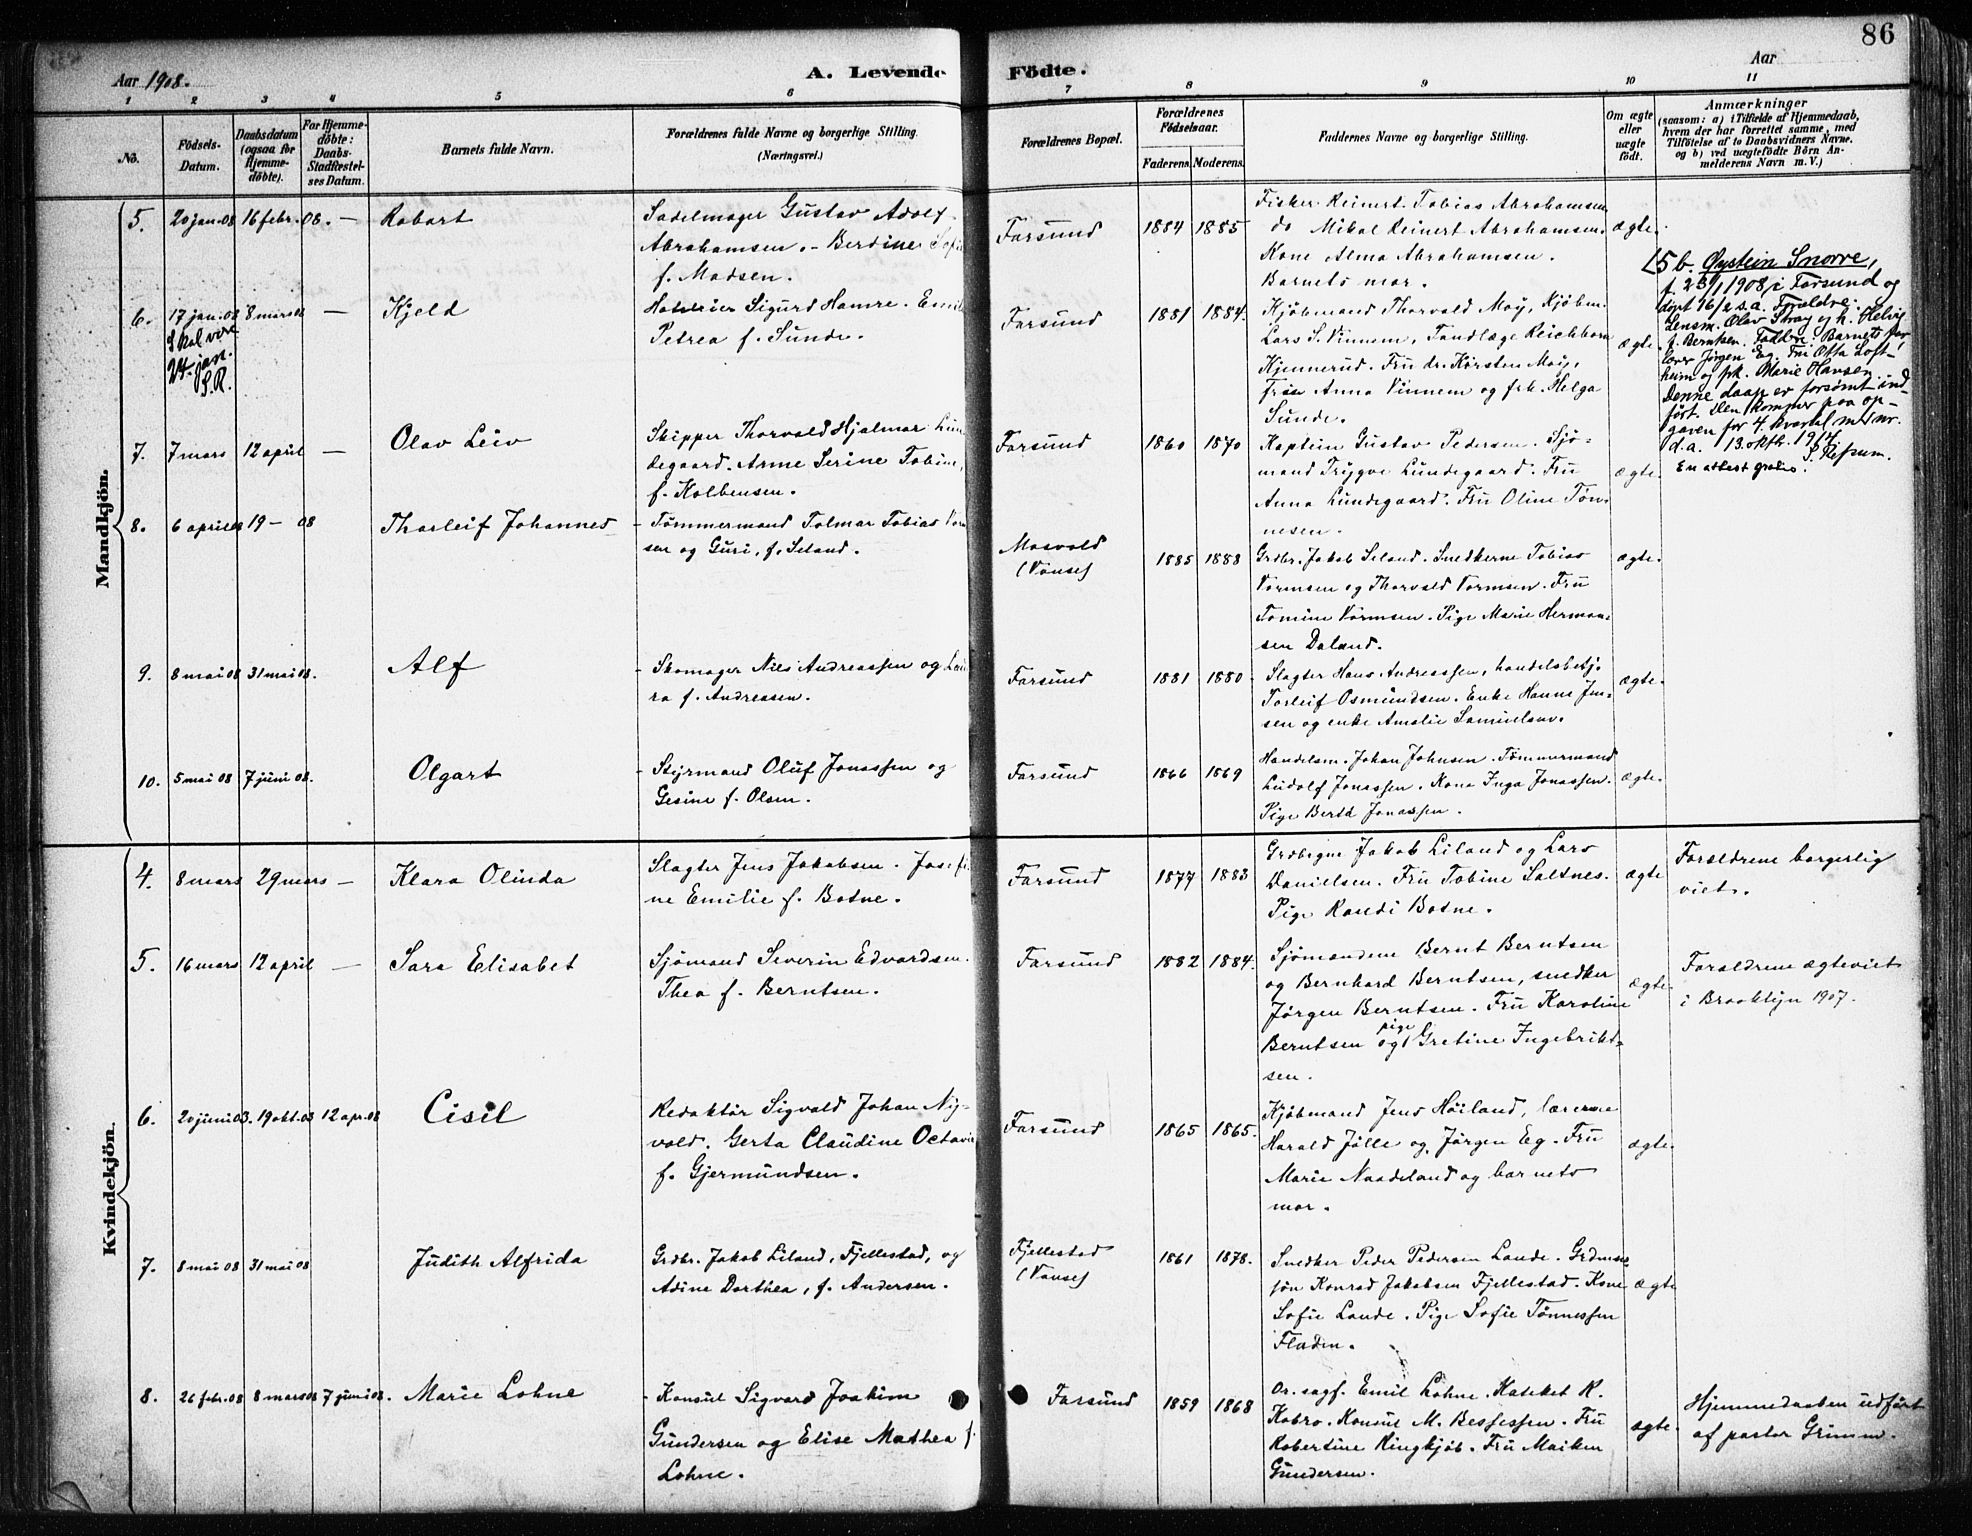 86
Aar 1908.
A. Levende Födte.
Aar
1 2 3 4 5 6 7 8 9 10 11
No.
Födsels-Datum.
Daabsdatum (ogsaa for Hjemmedöbte).
For Hjemmedöbte: Daabs-Stadfestelses Datum.
Barnets fulde Navn.
Forældrenes fulde Navne og borgerlige Stilling. (Næringsvei.)
Forældrenes Bopæl.
Forældrenes Födselsaar.
Faderens. Moderens.
Faddernes Navne og borgerlige Stilling.
Om ægte eller uægte födt.
Anmærkninger
(saasom: a) i Tilfælde af Hjemmedaab,
hvem der har forrettet samme, med
Tilföielse af to Daabsvidners Navne.
og b) ved uægtefödte Börn An-
melderens Navn m. V.)
Mandkjön.
5. 20 jan. 08 16 febr. 08. — Robert
Sadelmager Gustav Adolf
Abrahamsen. - Berdine Sofie
f. Madsen.
Farsund 1884 1885
Fisker Reinert Tobias Abrahamsen
do Mikal Reinert Abrahamsen.
Kone Alma Abrahamsen.
Barnets mor.
ægte.
5 b. Øystein Snorre,
f. 23/1 1908 i Farsund og
døpt 16/2 s.a. Foreldre:
Lensm. Olav Stray og h. Helvig
f. Berntsen. Faddre: Barnets far,
lærer Jørgen Eg. Fru Otta Loft-
heim og frk. Marie Hansen.
Denne daap er forsømt ind-
ført. Den kommer paa op-
gaven for 4. kvartal med nr.
d.a. 13. oktb. 1914.
S. Refsum.
En attest gratis.
6. 17 jan. 08 8 mars 08 — Kjeld
Skal være
24. jan.
S.R.
Hoteleier Sigurd Hamre. Emilie
Petrea f. Sunde.
Farsund 1881 1884.
Kjøbmand Thorvald Moy, Kjøbm.
Lars S. Vinnem, Tandlæge Reichborn
Kjennerud. Fru dr. Kirsten Moy,
Frue Anna Vinnem og frk. Helga
Sunde.
ægte.
7. 7 mars 12 april — Olav Leiv
Skipper Thorvald Hjalmar Lun
degaard. Anne Serine Tobine,
f. Kolbensen.
Farsund 1860 1870
Kaptein Gustav Pedersen. Sjø-
mand Trygve Lundegaard. Fru
Anna Lundegaard. Fru Oline Tøn-
nesen.
ægte.
8. 6 april 08 19 — 08 Thorleif Johannes
- Tømmermand Tolmar Tobias Vorm
sen og Guri, f. Seland.
Mosvold
(Vanse)
1885 1888
Grdbr. Jakob Seland. Snedkerne Tobias
Vormsen og Thorvald Vormsen. Fru
Tomine Vormsen. Pige Marie Herman-
sen Daland.
ægte.
9. 8 mai 08 31 mai 08. Alf
- Skomager Nils Andreassen og Lau
ra f. Andreasen.
Farsund 1881 1880
Slagter Hans Andreassen, handelsbetj.
Torleif Osmundsen. Enke Hanne Jen-
sen og enke Amalie Samuelsen.
ægte.
10. 5 mai 08 7 juni 08. Olgart
- Styrmand Oluf Jonassen og
Gesine f. Olsen.
Farsund 1866 1869
Handelsm. Johan Johnsen. Tømmermand
Ludolf Jonassen. Kone Inga Jonassen.
Pige Berta Jonassen.
ægte.
Kvindekjön.
4. 8 mars 29 mars — Klara Olinda
Slagter Jens Jakobsen. Josefi
ne Emilie f. Botne.
Farsund 1877 1883
Grdbrgne Jakob Liland og Lars
Danielsen. Fru Tobine Saltnes.
Pige Randi Botne.
ægte
Forældrene borgerlig
viet.
5. 16 mars 12 april — Sara Elisabet
Sjømand Severin Edvardsen.
Thea f. Berntsen.
Farsund 1882 1884.
Sjømændene Bernt Berntsen
og Bernhard Berntsen, snedker
Jørgen Berntsen. Fru Karoline
Berntsen og pige Gretine Ingebrikt-
sen.
ægte.
Forældrene ægteviet
i Brooklyn 1907.
6. 20 juni 03. 19 okt. 03 12 apr. 08 Cisil
Redaktør Sigvald Johan Ny-
vold. Gerta Claudine Octavie
f. Gjermundsen.
Farsund 1865 1865.
Kjøbmand Jens Höiland, lærerne
Harald Jølle og Jørgen Eg. Fru
Marie Naadeland og barnets
mor.
ægte.
7. 8 mai 08 31 mai 08 Judith Alfrida
Grdbr. Jakob Liland, Fjellestad, og
Adine Dorthea, f. Andersen.
Fjellestad
(Vanse)
1861 1878.
Snedker Peder Pedersen Lande. Grdmands-
søn Konrad Jakobsen Fjellestad. Kone
Sofie Lande. Pige Sofie Tønnessen
Fladen.
ægte
8. 26 febr. 08 8 mars 08 7 juni 08. Marie Lohne
- Konsul Sigvard Joakim
Gundersen og Elise Mathea f.
Lohne.
Farsund 1859 1868
Or. sagf. Emil Lohne. Kateket R.
Kobro. Konsul M. Bessesen. Fru
Robertine Ringkjøb. Fru Maiken
Gundersen.
ægte.
Hjemmedaaben udført
af pastor Grimm.